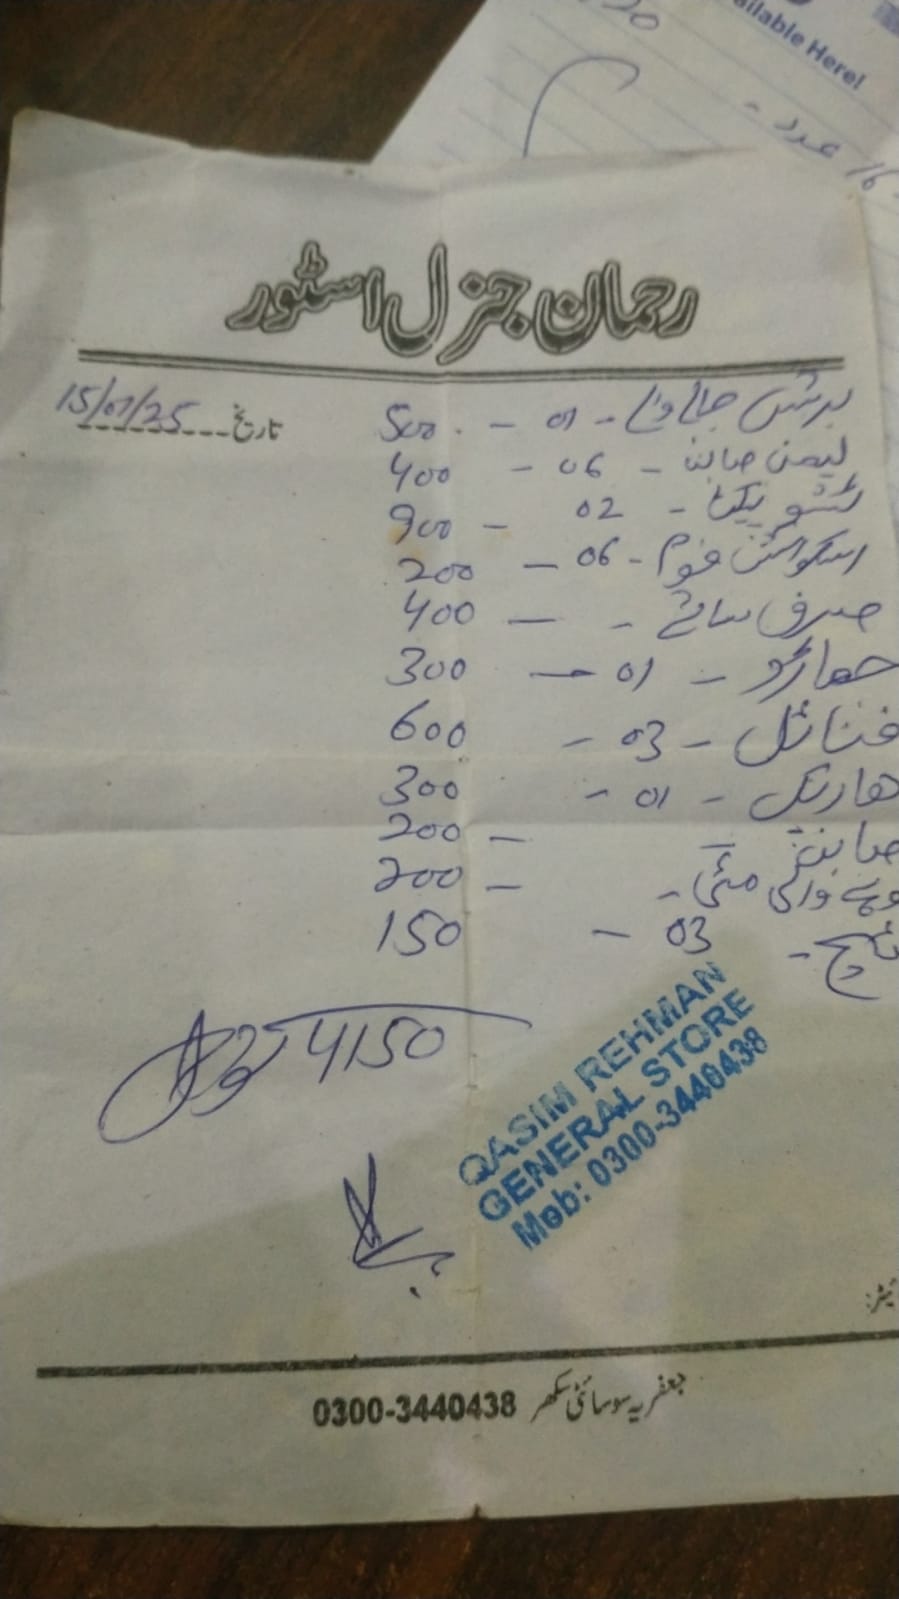 Available Here!
16 عدد -
رحمان جنرل اسٹور
تاریخ 15/07/25
برش جالے والے - 01 - 500
لیمن صابن - 06 - 400
ٹشو پیکٹ - 02 - 900
اسکواش فوم - 06 - 200
صرف ساشے - - 400
جھاڑو - 01 - 300
فنائل - 03 - 600
ھارپک - 01 - 300
صابن - - 200
والی مٹی - - 200
03 - 150
4150
QASIM REHMAN
GENERAL STORE
Mob: 0300-3440438
جعفریہ سوسائٹی سکھر 0300-3440438